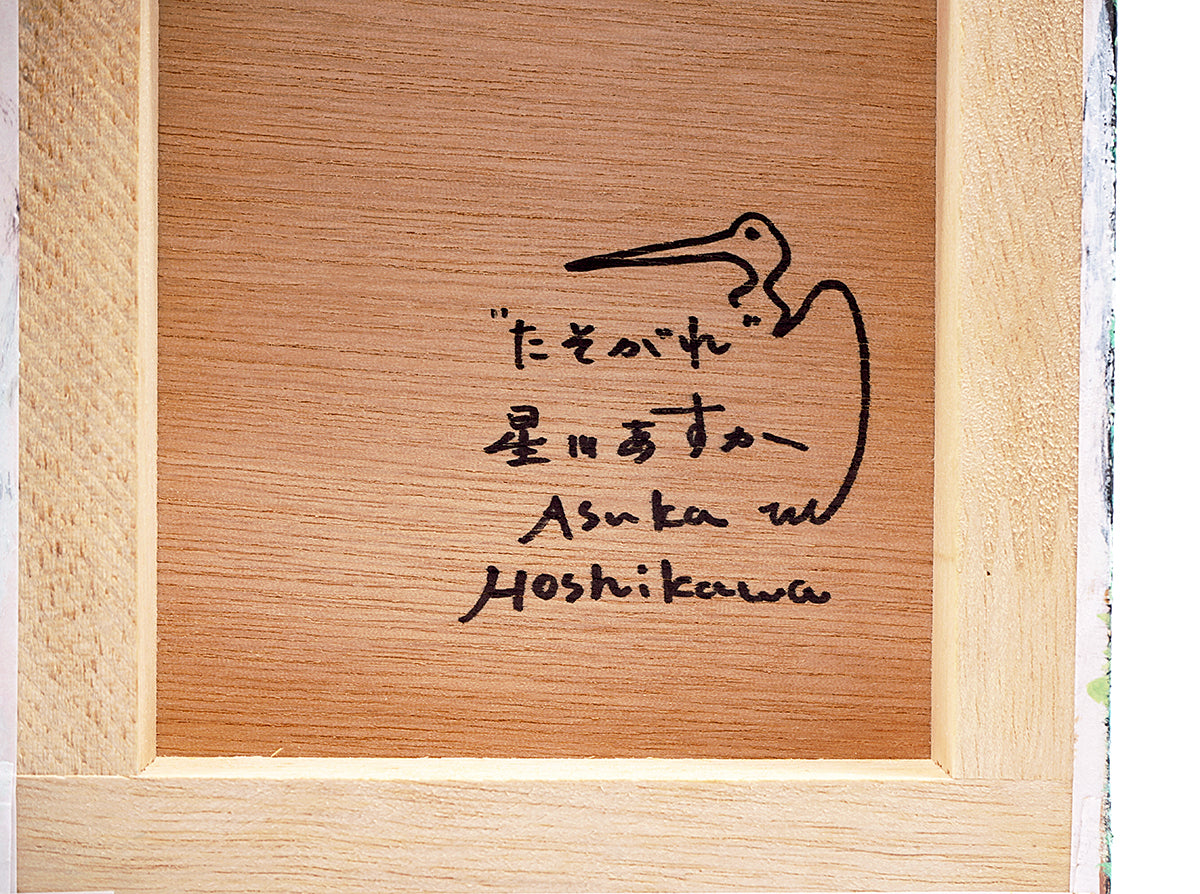 "たそがれ"
星川あすか
Asuka
Hoshikawa